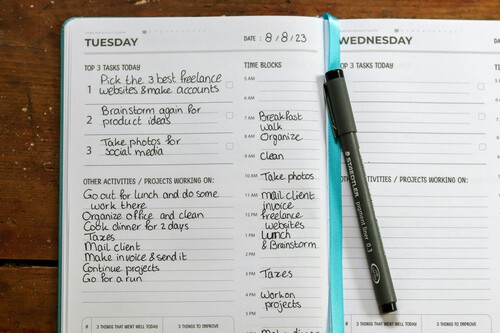 TUESDAY
DATE : 8/8/23
TOP 3 TASKS TODAY
1 Pick the 3 best freelance
websites & make accounts
2 Brainstorm again for
product ideas
3 Take photos for
social media
OTHER ACTIVITIES / PROJECTS WORKING ON:
Go out for lunch and do some
work there
Organize office and clean
Cook dinner for 2 days
Taxes
Mail client
Make invoice & send it
Continue projects
Go for a run
3 THINGS THAT WENT WELL TODAY
3 THINGS TO IMPROVE
TIME BLOCKS
5 AM
6 AM
7 AM Breakfast
Walk
8 AM Organize
9 AM Clean
10 AM Take photos
11 AM Mail client
invoice
12 PM freelance
websites
1 PM Lunch
& Brainstorm
2 PM
3 PM Taxes
4 PM Work on
projects
5 PM
WEDNESDAY
TOP 3 TASKS TODAY
ACTIVITIES / PROJECTS WORKING ON:
3 THINGS THAT WENT WELL TODAY
3 THINGS TO IMPROVE
STAEDTLER
pigment liner 0.3